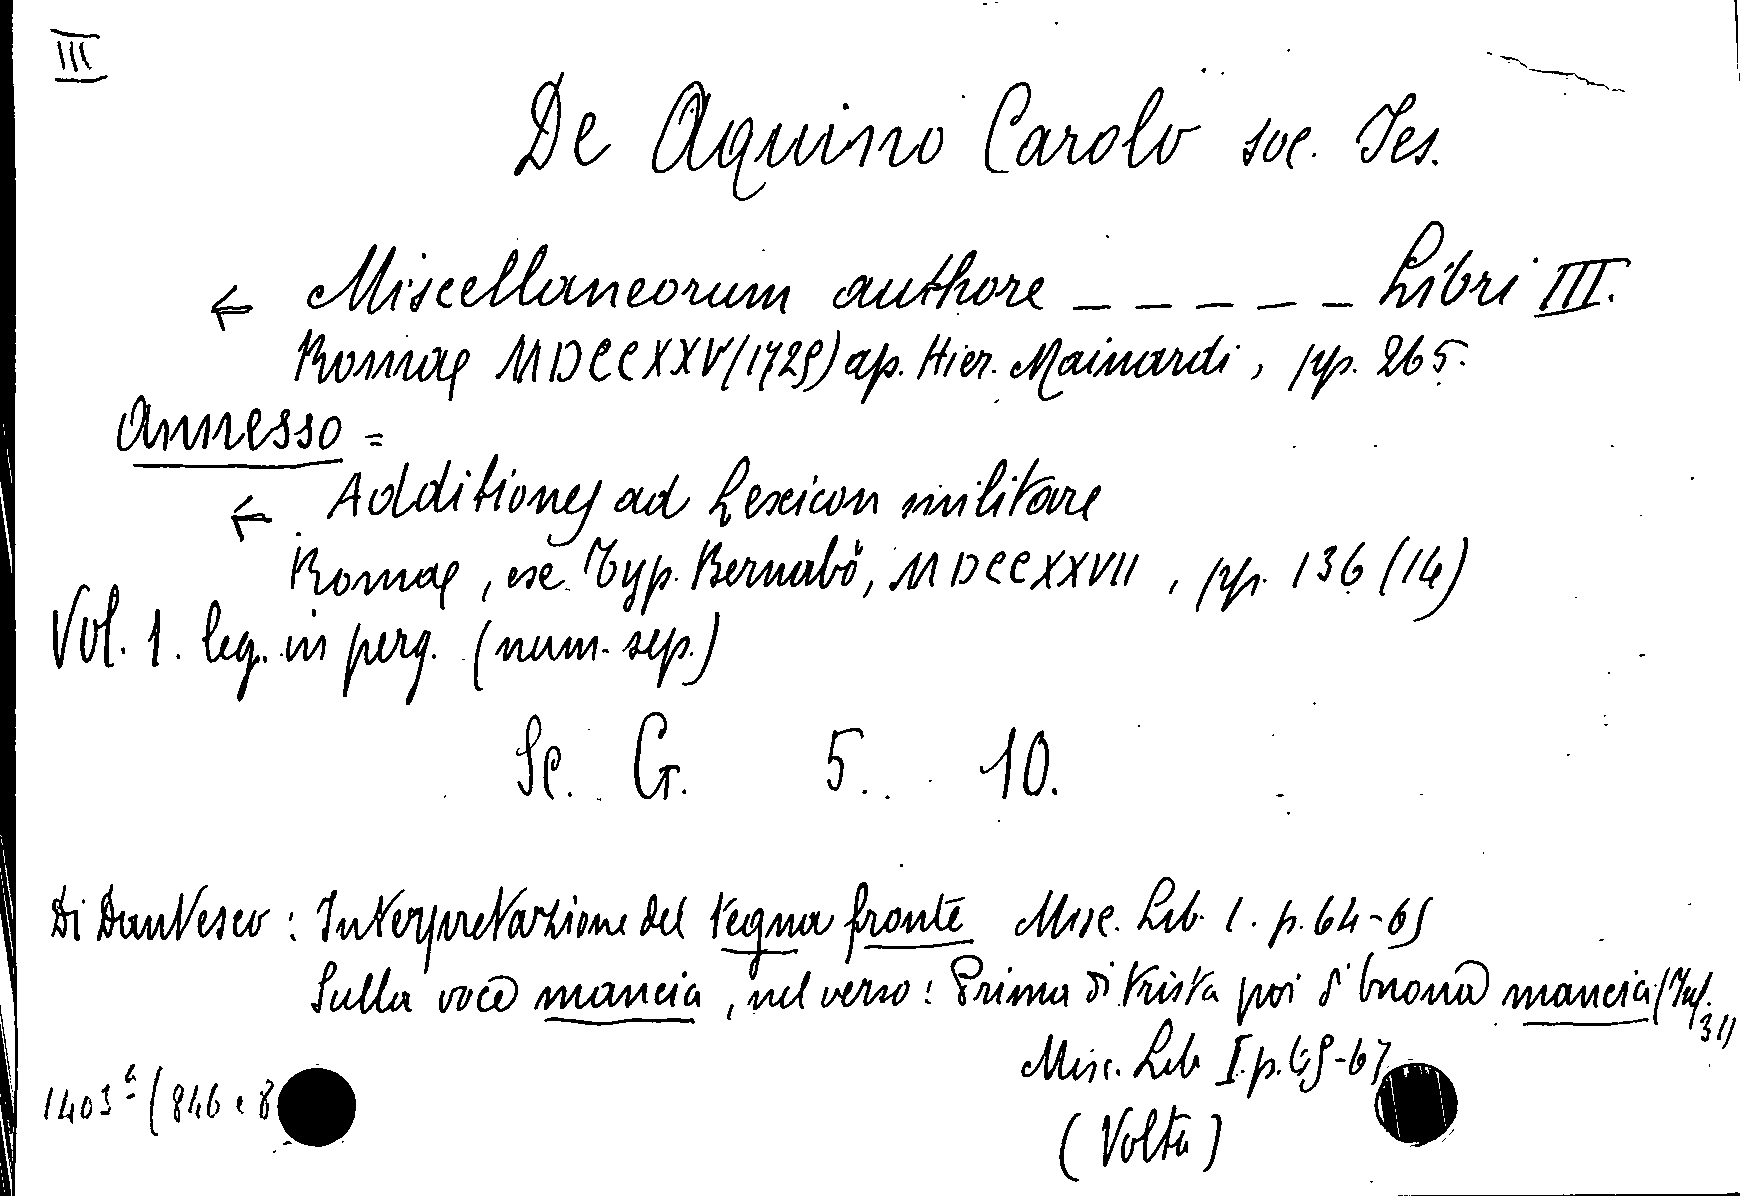 III
De Aquino Carolo soc. Jes.
← Miscellaneorum authore _ _ _ _ _ Libri III.
Romae MDCCXXV (1725) ap. Hier. Mainardi, pp. 265.
Annesso =
← Additiones ad Lexicon militare
Romae, ex Typ. Bernabò, MDCCXXVII, pp. 136 (14)
Vol. 1. leg. in perg. (num. sep.)
Sc. G. 5. 10.
Di Dantesco: Interpretazione del regna fronte Misc. Lib. I. p. 64-65
Sulla voce mancia, nel verso: Prima di trista poi di buona mancia (Inf. 31)
Misc. Lib I. p. 65-67
1403 (846 e 8
(Volta)